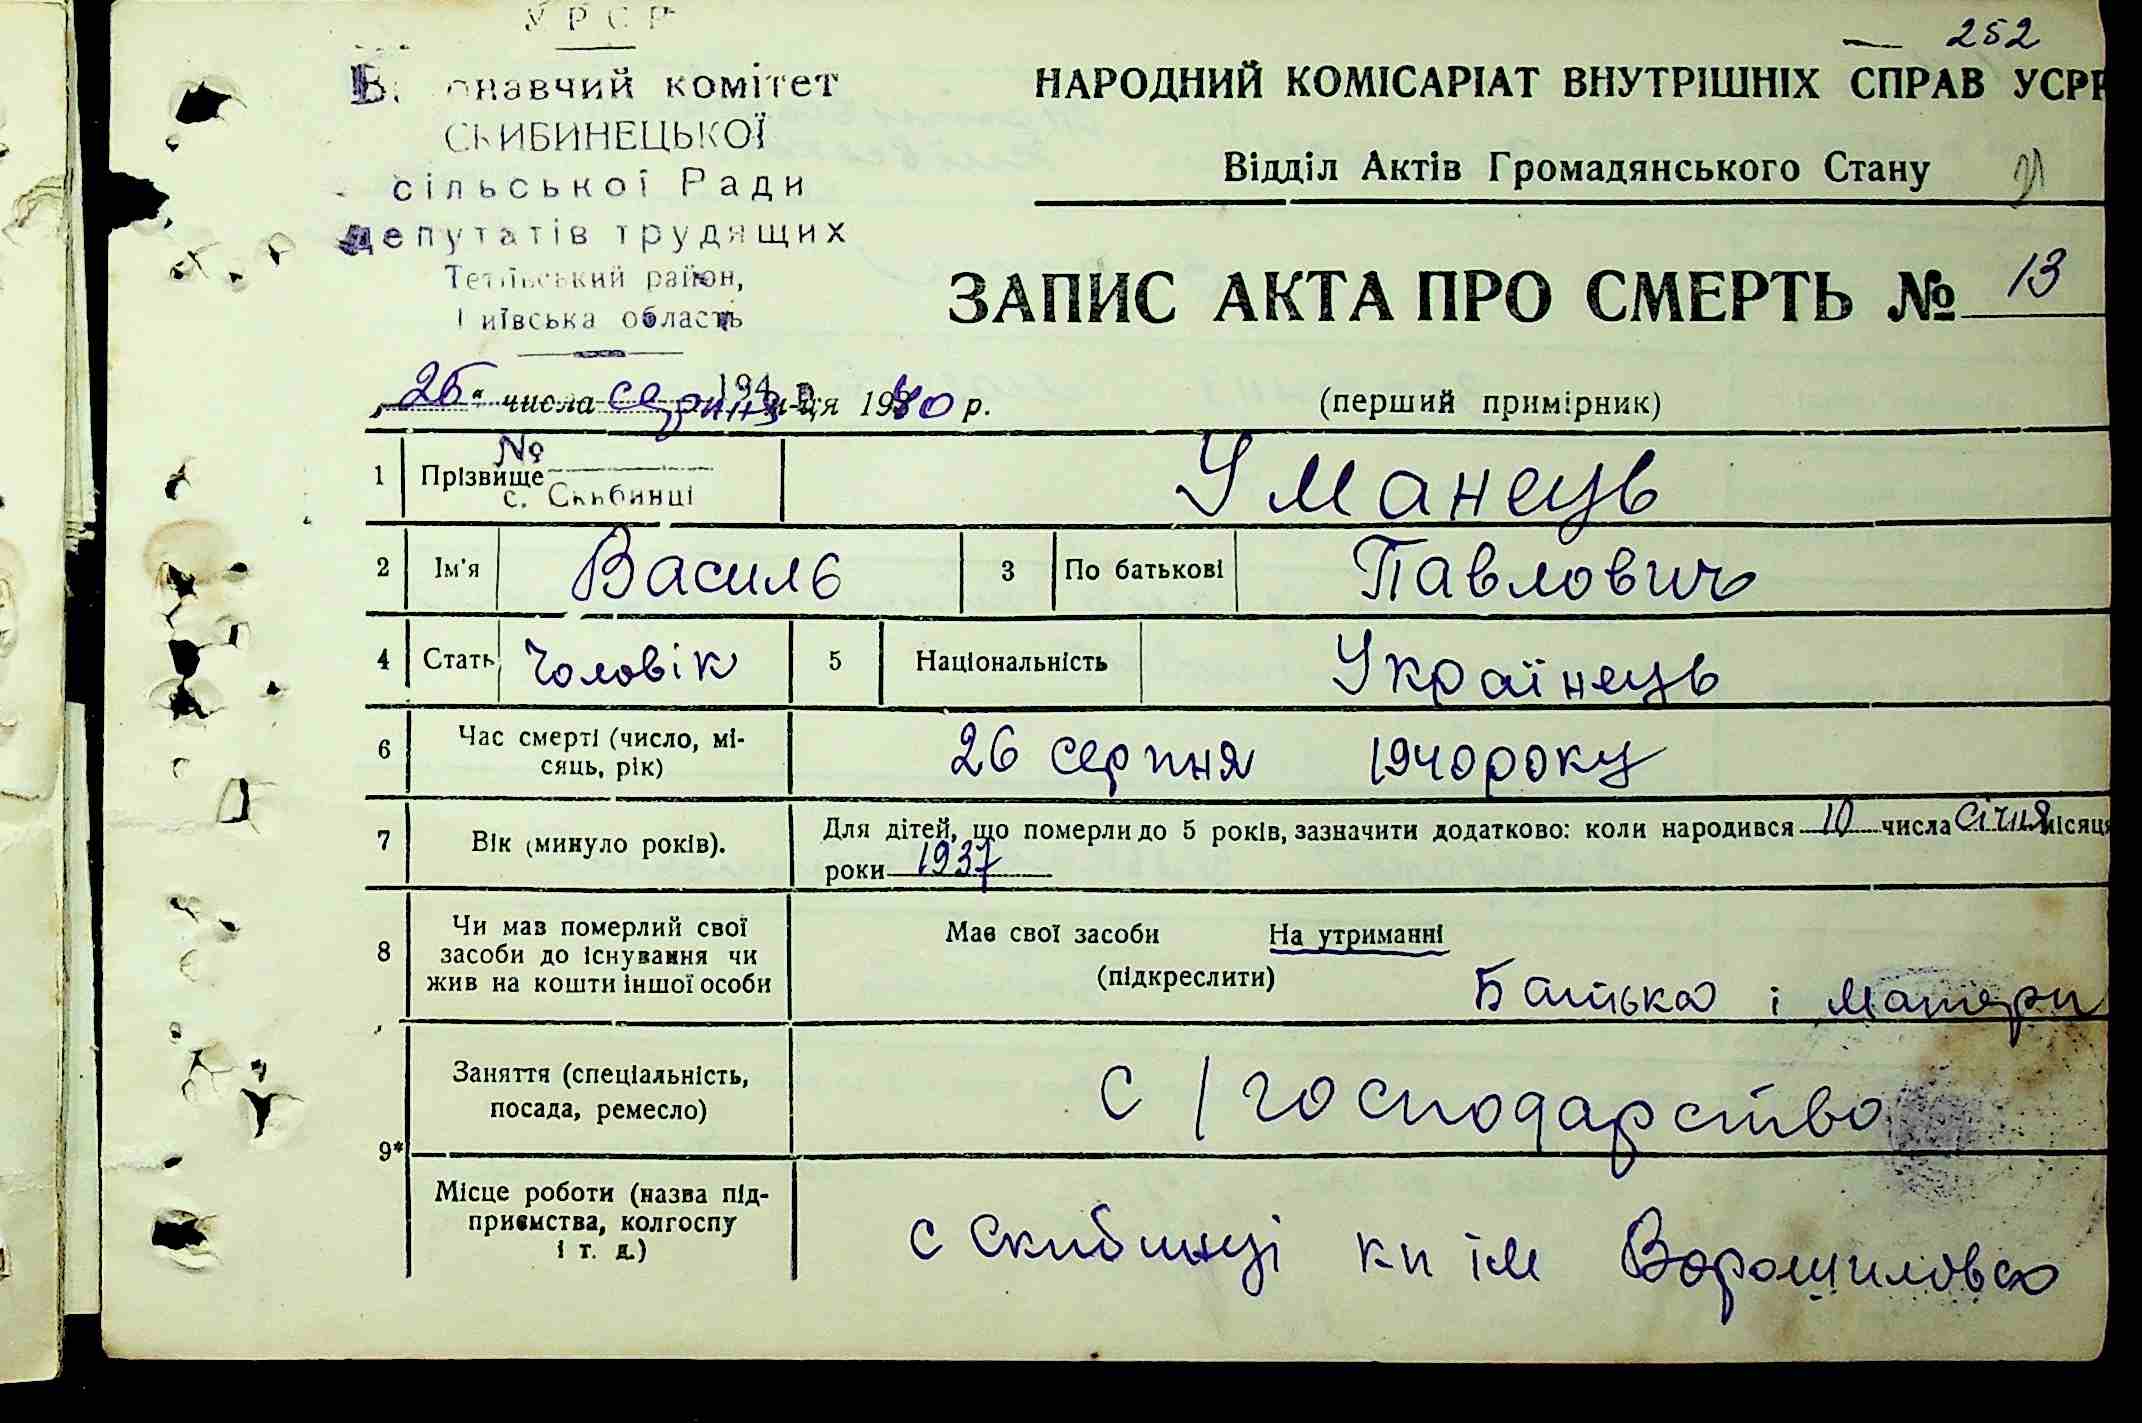 УРСР
— 252
Виконавчий комітет
НАРОДНИЙ КОМІСАРІАТ ВНУТРІШНІХ СПРАВ УСРР
СКИБИНЕЦЬКОЇ
сільської Ради
Відділ Актів Громадянського Стану
депутатів трудящих
Тетіївський район,
Київська область
ЗАПИС АКТА ПРО СМЕРТЬ № 13
194 р.
„26" числа серпня м-ця 1940 р.
(перший примірник)
№
с. Скибинці
1 Прізвище Уманець
2 Ім'я Василь 3 По батькові Павлович
4 Стать Чоловік 5 Національність Українець
6 Час смерті (число, мі-
сяць, рік) 26 серпня 1940 року
7 Вік (минуло років). Для дітей, що померли до 5 років, зазначити додатково: коли народився 10 числа січня місяця
роки 1937
8 Чи мав померлий свої
засоби до існування чи
жив на кошти іншої особи
Має свої засоби На утриманні
(підкреслити)
Батька і матери
9* Заняття (спеціальність,
посада, ремесло) с/господарство
Місце роботи (назва під-
приємства, колгоспу
і т. д.) с Скибинці кп ім Ворошилова